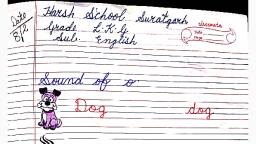 Date
8/2
Harsh School Suratgarh
Grade L.K.G
Sub. English
Date
Page
Sound of o
Dog dog